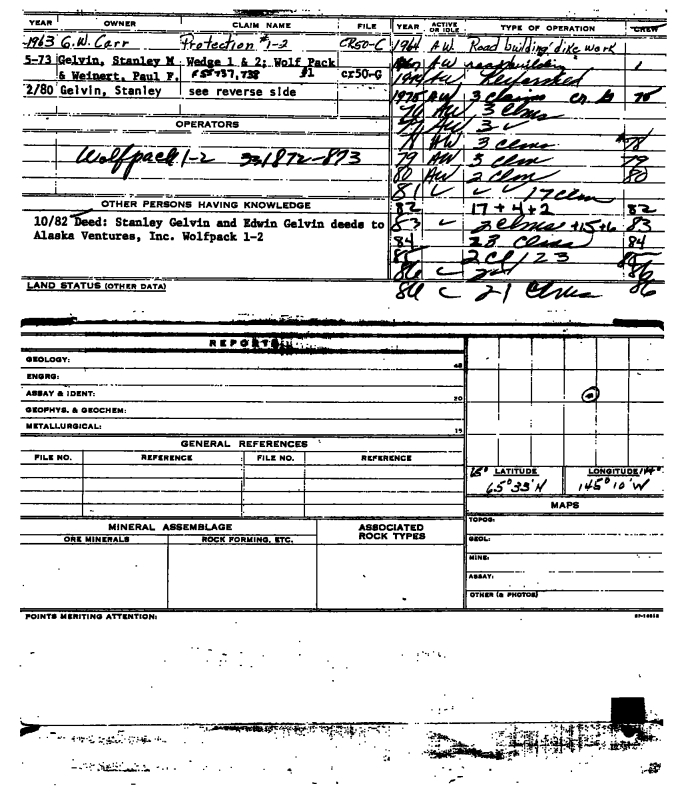 YEAR OWNER CLAIM NAME FILE YEAR ACTIVE OR IDLE TYPE OF OPERATION CREW
1963 G.W. Carr Protection #1-2 CR50-C 1964 AW Road building dike work
5-73 Gelvin, Stanley M Wedge 1 & 2; Wolf Pack AW roadbuilding 1
& Weinert, Paul F. #1 cr50-G
2/80 Gelvin, Stanley see reverse side 1975 AW 3 claims 75
76 AW 3 clms
OPERATORS
AW 3
78 AW 3 clms 78
Wolfpack 1-2 872-873 79 AW 3 clm 79
80 AW 2 clm 80
81 17 clm
OTHER PERSONS HAVING KNOWLEDGE
82 17 + 4 + 2 82
10/82 Deed: Stanley Gelvin and Edwin Gelvin deeds to 83 2 clms +15+6 83
Alaska Ventures, Inc. Wolfpack 1-2
84 23 clms 84
85 2 cl / 23 85
86 86
LAND STATUS (OTHER DATA)
86 21 clms 86
REPORTS
GEOLOGY:
ENGRG:
ASSAY & IDENT: 20
GEOPHYS. & GEOCHEM:
METALLURGICAL: 15
GENERAL REFERENCES
FILE NO. REFERENCE FILE NO. REFERENCE
65° LATITUDE LONGITUDE 144°
65° 33' N 145° 10' W
MAPS
TOPOG:
MINERAL ASSEMBLAGE ASSOCIATED ROCK TYPES
ORE MINERALS ROCK FORMING, ETC.
GEOL:
MINE:
ASSAY:
OTHER (& PHOTOS)
POINTS MERITING ATTENTION: